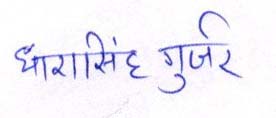 धारासिंह गुर्जर